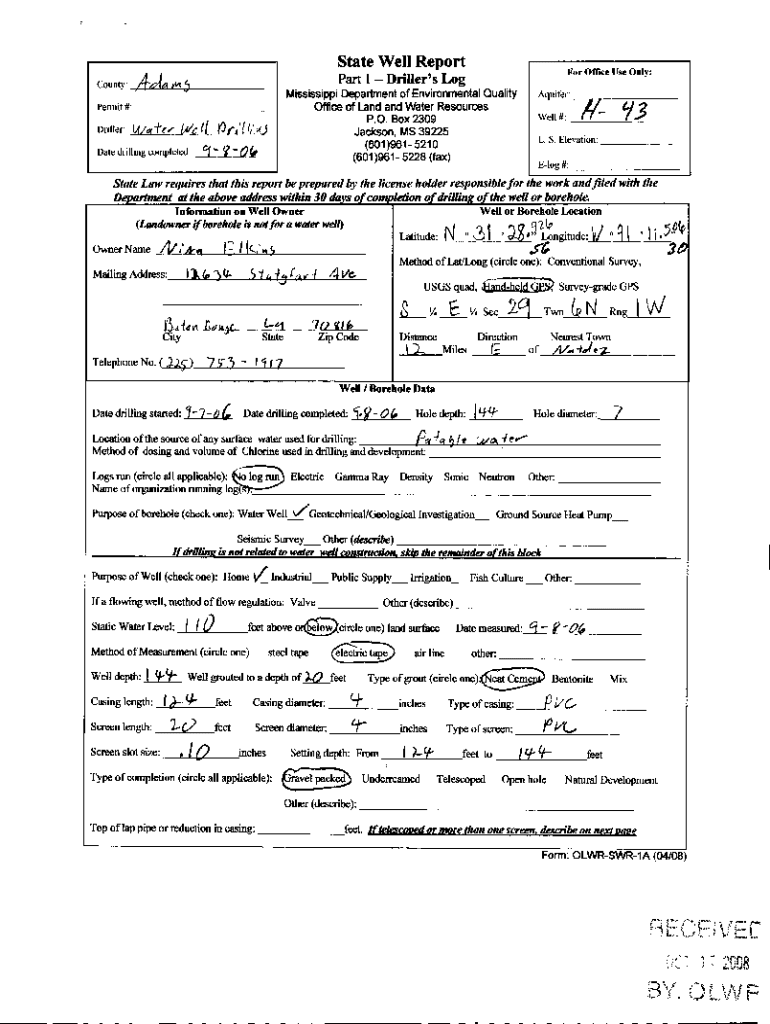 State Well Report
Part 1 – Driller's Log
Mississippi Department of Environmental Quality
Office of Land and Water Resources
P.O. Box 2309
Jackson, MS 39225
(601)961- 5210
(601)961- 5228 (fax)
County: Adams
Permit #:
Driller: Water Well Drilling
Date drilling completed: 9-8-06
For Office Use Only:
Aquifer:
Well #: H- 43
L. S. Elevation:
E-log #:
State Law requires that this report be prepared by the license holder responsible for the work and filed with the
Department at the above address within 30 days of completion of drilling of the well or borehole.
Information on Well Owner
(Landowner if borehole is not for a water well)
Owner Name Elkins
Mailing Address: 12634 Ave
La 70816
City State Zip Code
Telephone No. (225) 753 - 1917
Well or Borehole Location
Latitude: N . 31 . 28.926 Longitude: W . 91 . 11.506
56 30
Method of Lat/Long (circle one): Conventional Survey,
USGS quad, Hand-held GPS, Survey-grade GPS
S ¼ E ¼ Sec 29 Twn 6N Rng 1W
Distance Direction Nearest Town
12 Miles E of
Well / Borehole Data
Date drilling started: 9-7-06 Date drilling completed: 9-8-06 Hole depth: 144 Hole diameter: 7
Location of the source of any surface water used for drilling: Potable water
Method of dosing and volume of Chlorine used in drilling and development:
Logs run (circle all applicable): No log run Electric Gamma Ray Density Sonic Neutron Other:
Name of organization running log(s):
Purpose of borehole (check one): Water Well ✓ Geotechnical/Geological Investigation Ground Source Heat Pump
Seismic Survey Other (describe)
If drilling is not related to water well construction, skip the remainder of this block
Purpose of Well (check one): Home ✓ Industrial Public Supply Irrigation Fish Culture Other:
If a flowing well, method of flow regulation: Valve Other (describe)
Static Water Level: 110 feet above or below (circle one) land surface Date measured: 9-8-06
Method of Measurement (circle one) steel tape electric tape air line other:
Well depth: 144 Well grouted to a depth of 20 feet Type of grout (circle one): Neat Cement Bentonite Mix
Casing length: 124 feet Casing diameter: 4 inches Type of casing: PVC
Screen length: 20 feet Screen diameter: 4 inches Type of screen: PVC
Screen slot size: .10 inches Setting depth: From 124 feet to 144 feet
Type of completion (circle all applicable): Gravel packed Underreamed Telescoped Open hole Natural Development
Other (describe):
Top of lap pipe or reduction in casing: feet. If telescoped or more than one screen, describe on next page
Form: OLWR-SWR-1A (04/08)
RECEIVED
OCT 2008
BY: OLWR